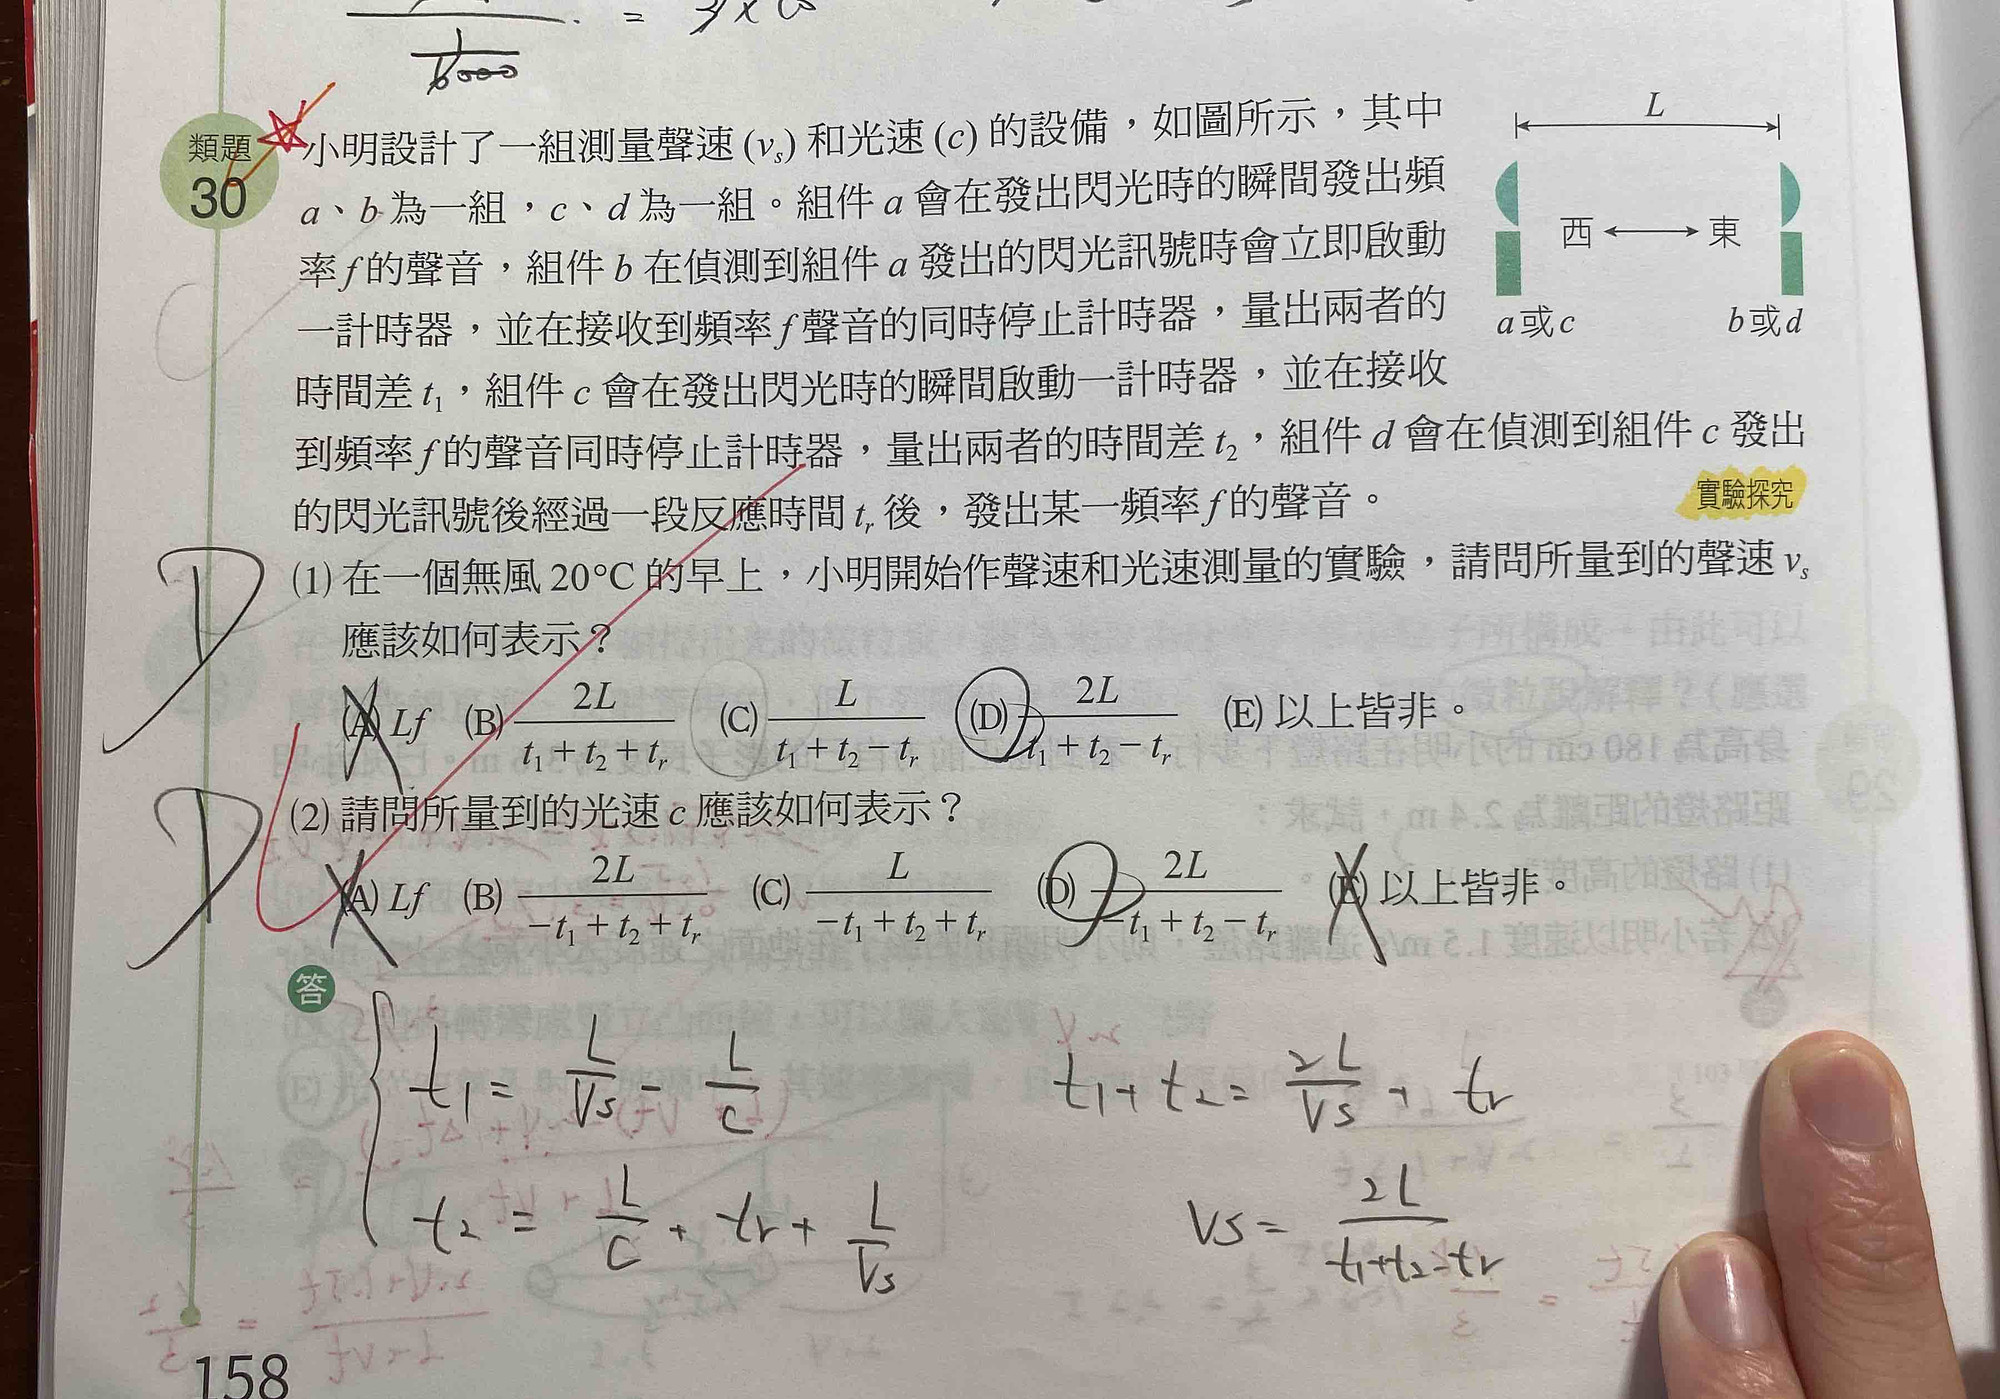 1/6000
類題
30
小明設計了一組測量聲速 (vs) 和光速 (c) 的設備，如圖所示，其中
a、b 為一組，c、d 為一組。組件 a 會在發出閃光時的瞬間發出頻
率 f 的聲音，組件 b 在偵測到組件 a 發出的閃光訊號時會立即啟動
一計時器，並在接收到頻率 f 聲音的同時停止計時器，量出兩者的
時間差 t1，組件 c 會在發出閃光時的瞬間啟動一計時器，並在接收
到頻率 f 的聲音同時停止計時器，量出兩者的時間差 t2，組件 d 會在偵測到組件 c 發出
的閃光訊號後經過一段反應時間 tr 後，發出某一頻率 f 的聲音。
實驗探究
L
西 東
a或c b或d
(1) 在一個無風 20°C 的早上，小明開始作聲速和光速測量的實驗，請問所量到的聲速 vs
應該如何表示？
D
(A) Lf (B) 2L/(t1 + t2 + tr) (C) L/(t1 + t2 − tr) (D) 2L/(t1 + t2 − tr) (E) 以上皆非。
(2) 請問所量到的光速 c 應該如何表示？
D
(A) Lf (B) 2L/(−t1 + t2 + tr) (C) L/(−t1 + t2 + tr) (D) 2L/(−t1 + t2 − tr) (E) 以上皆非。
答
t1 = L/Vs − L/C
t2 = L/C + tr + L/Vs
t1 + t2 = 2L/Vs + tr
Vs = 2L/(t1+t2−tr)
158